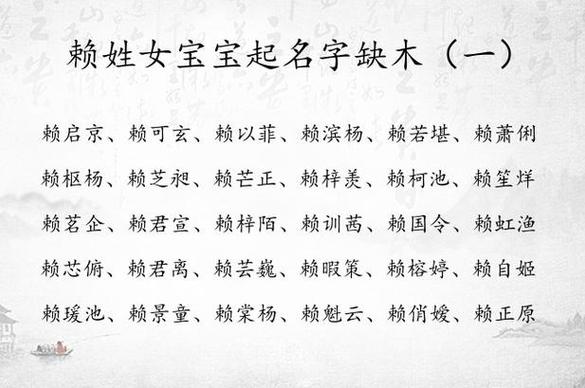 赖姓女宝宝起名字缺木（一）
赖启京、赖可玄、赖以菲、赖滨杨、赖若堪、赖萧俐
赖枢杨、赖芝昶、赖芒正、赖梓羡、赖柯池、赖笙烊
赖茗企、赖君宣、赖梓陌、赖训茜、赖国令、赖虹渔
赖芯俯、赖君离、赖芸巍、赖暇策、赖榕婷、赖自姬
赖瑗池、赖景童、赖棠杨、赖魁云、赖俏嫒、赖正原